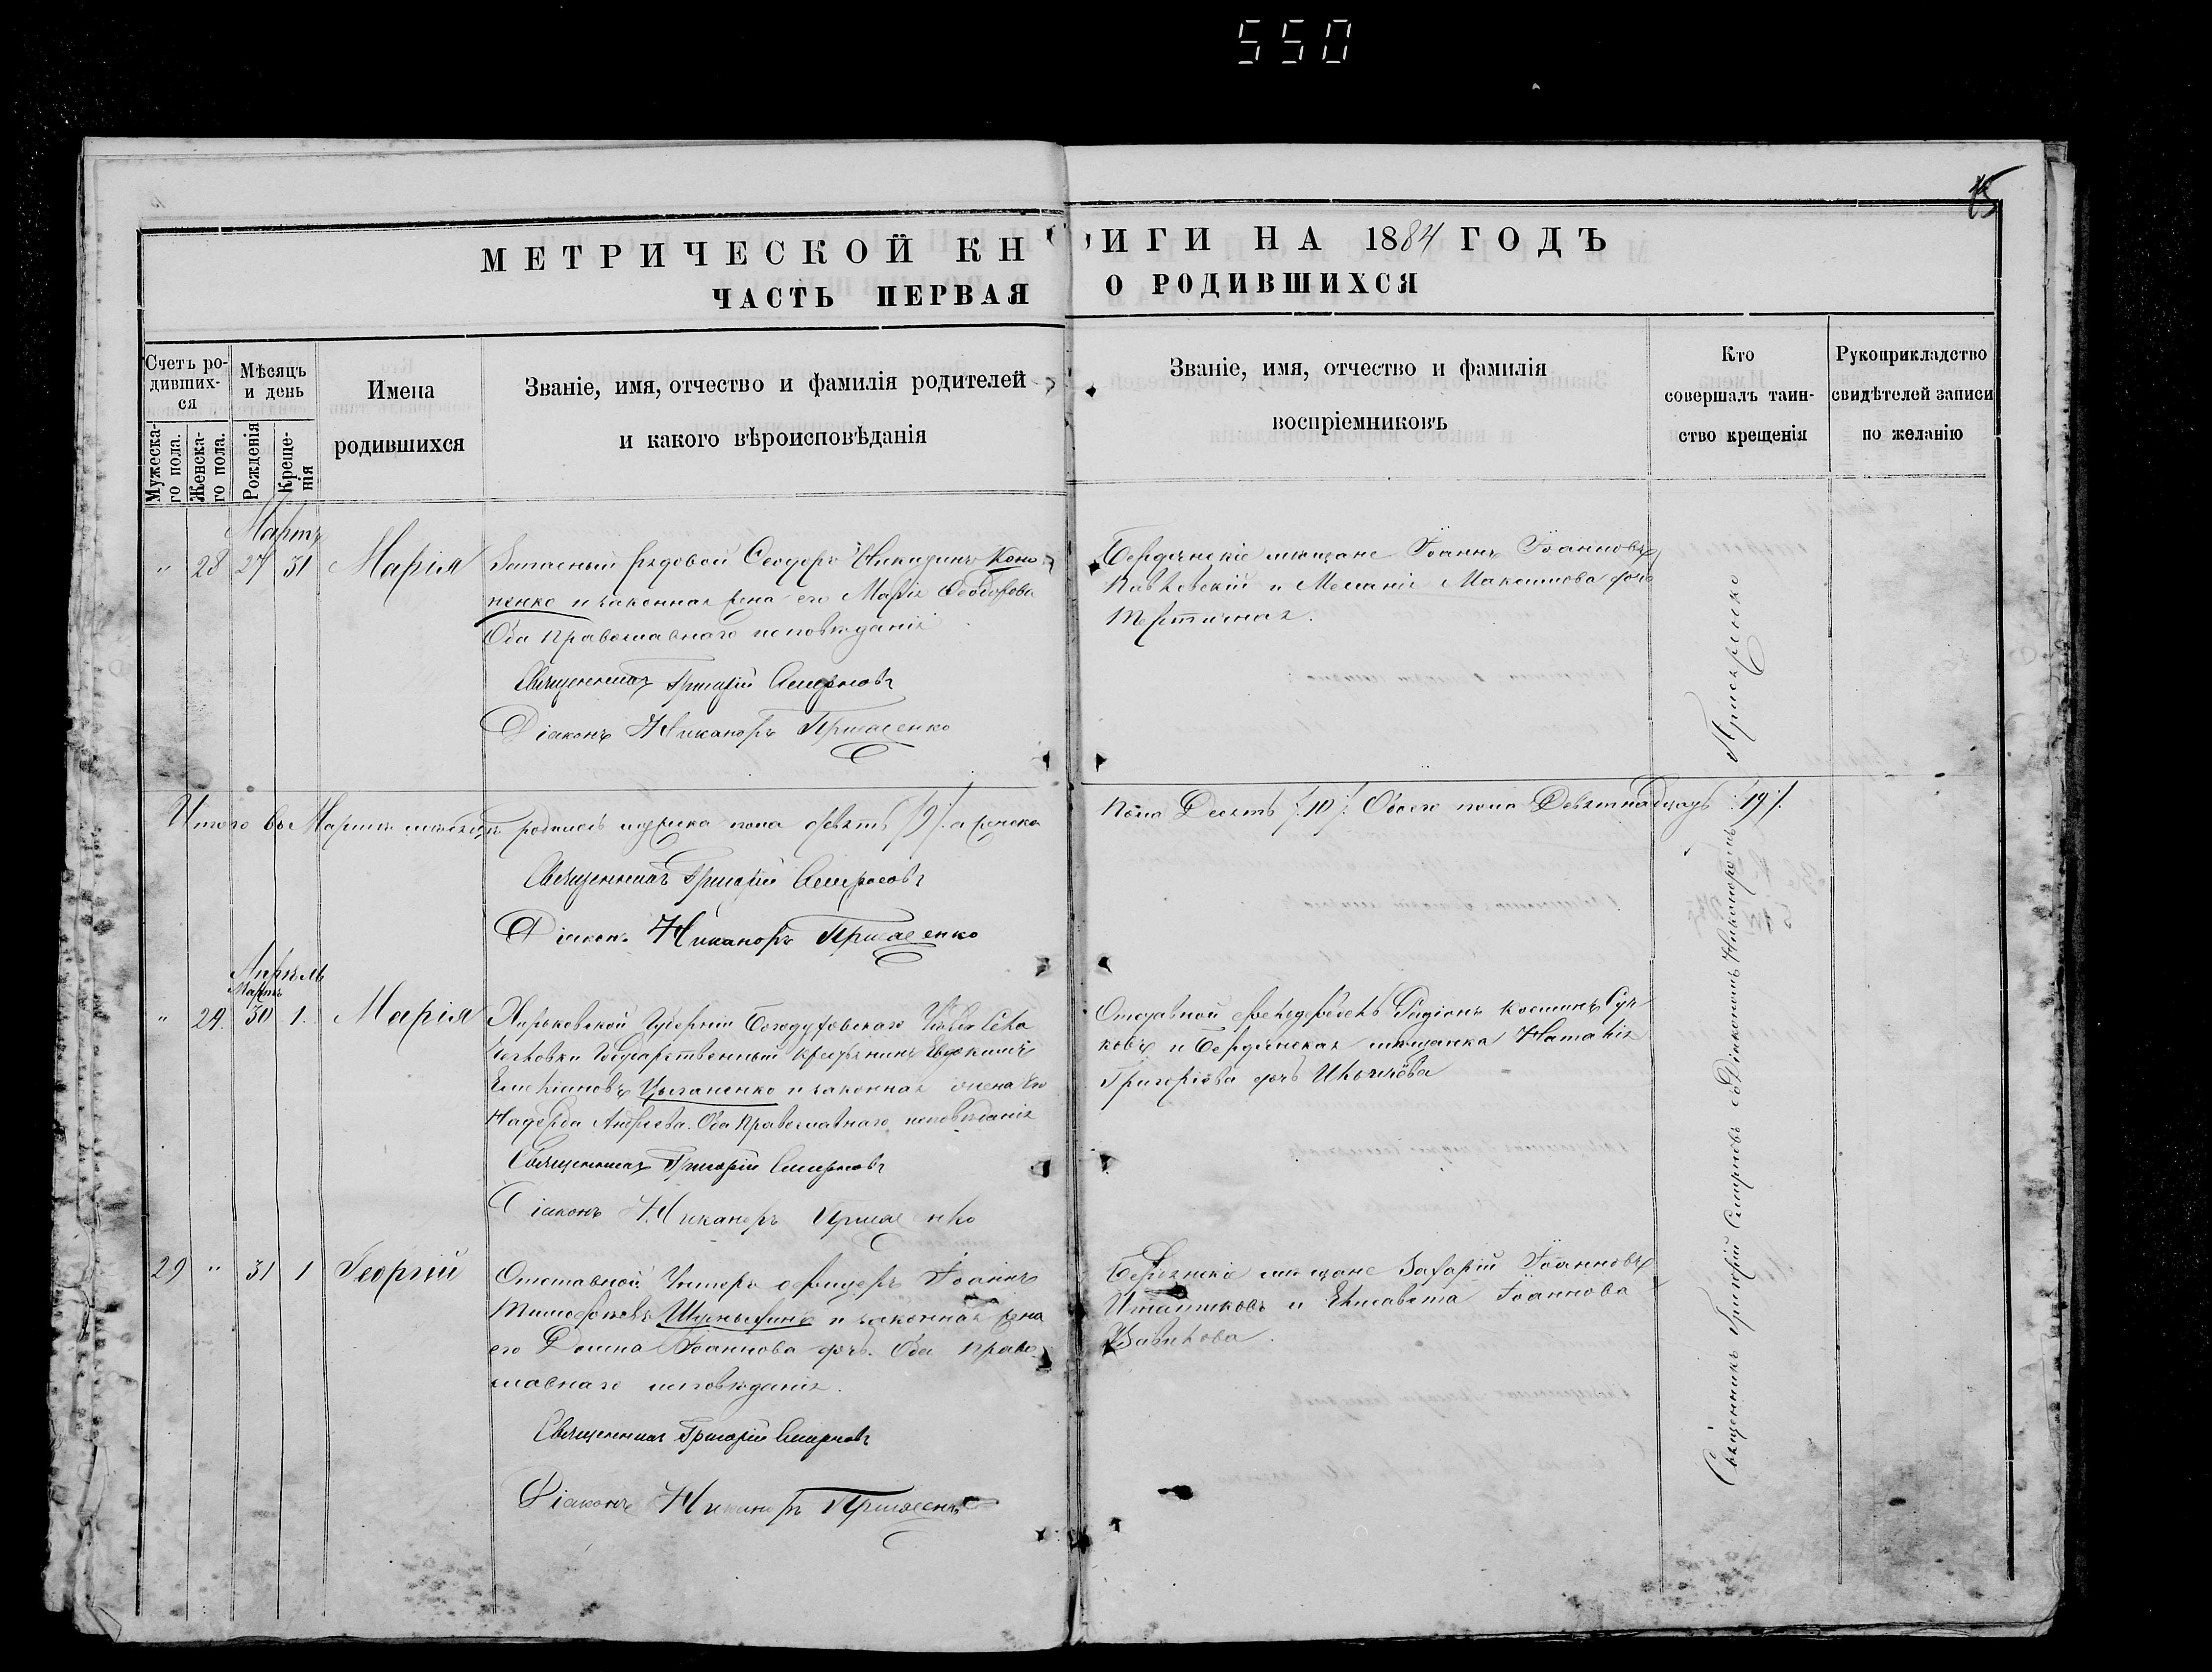 550
15
МЕТРИЧЕСКОЙ КНИГИ НА 1884 ГОДЪ
ЧАСТЬ ПЕРВАЯ О РОДИВШИХСЯ
Счетъ ро-
дивших-
ся
Мужеска-
го пола.
Женска-
го пола.
Мѣсяцъ
и день
Рожденія
Креще-
нія
Имена
родившихся
Званіе, имя, отчество и фамилія родителей
и какого вѣроисповѣданія
Званіе, имя, отчество и фамилія
воспріемниковъ
Кто
совершалъ таин-
ство крещенія
Рукоприкладство
свидѣтелей записи
по желанію
Мартъ
" 28 27 31 Марія
Запасный рядовой Ѳеодоръ Никидинъ Коно-
ненко и законная жена его Марія Ѳеодорова
Оба Православнаго исповѣданія
Священникъ Григорій Смирновъ
Діаконъ Никаноръ
Бердянскіе мѣщане Іоаннъ Іоанновъ
Павловскій и Меланія Максимова дочь
Тертичная.
Итого въ Мартѣ мѣсяцѣ родилось мужска пола девять /9/. а женска
пола Десять /:10:/ Обоего пола Девятнадцать /:19:/.
Священникъ Григорій Смирновъ
Діаконъ Никаноръ
Апрѣль
Мартъ
" 29. 30 1. Марія
Харьковской Губерніи Богодуховскаго Уѣзда Села
Государственный крестьянинъ Евдокимъ
Емеліановъ Цыганенко и законная жена его
Надежда Андреева. Оба Православнаго исповѣданія
Священникъ Григорій Смирновъ
Діаконъ Никаноръ
Родіонъ Костинъ Суч-
ковъ и Бердянская мѣщанка Наталія
Григоріева дочь
29 " 31 1 Георгій
Отставной Унтеръ офицеръ Іоаннъ
Тимоѳеевъ и законная жена
его Домна Іоаннова дочь. Оба право-
славнаго исповѣданія.
Священникъ Григорій Смирновъ
Діаконъ Никаноръ
Бердянскіе мѣщане Захарій Іоанновъ
и Елисавета Іоаннова
Священникъ Григорій Смирновъ съ Діакономъ Никаноромъ